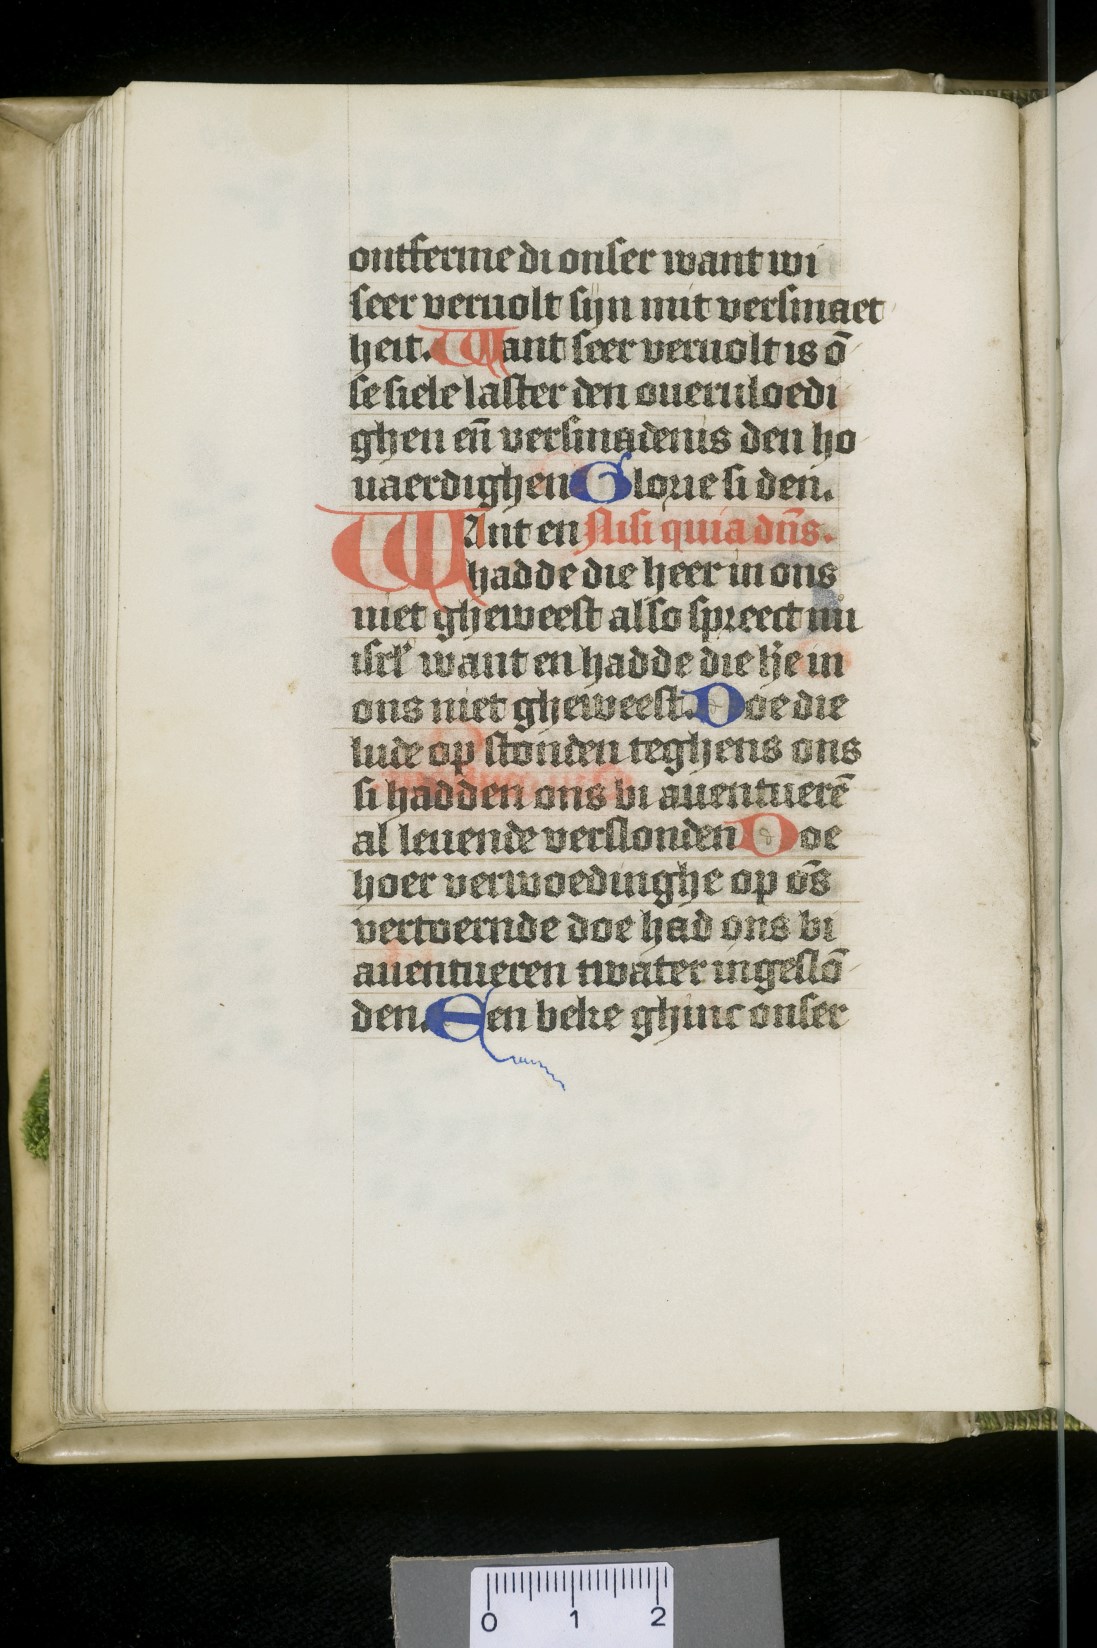 ontferme di onser want wi
seer veruolt sijn mit versmaet
heit. Want seer veruolt is õ
se siele laster den oueruloedi
ghen eñ versmadenis den ho
uaerdighen Glorie si den.
Want en Nisi quia dñs.
hadde die heer in ons
niet gheweest also spreect nu
isrl' want en hadde die h̄e in
ons niet gheweest. Doe die
lude op stonden teghens ons
si hadden ons bi auentuerē
al leuende verslonden Doe
hoer verwoedinghe op õs
vertoernde doe had ons bi
auentueren twater ingeslõ
den. Een beke ghinc onser
0 1 2